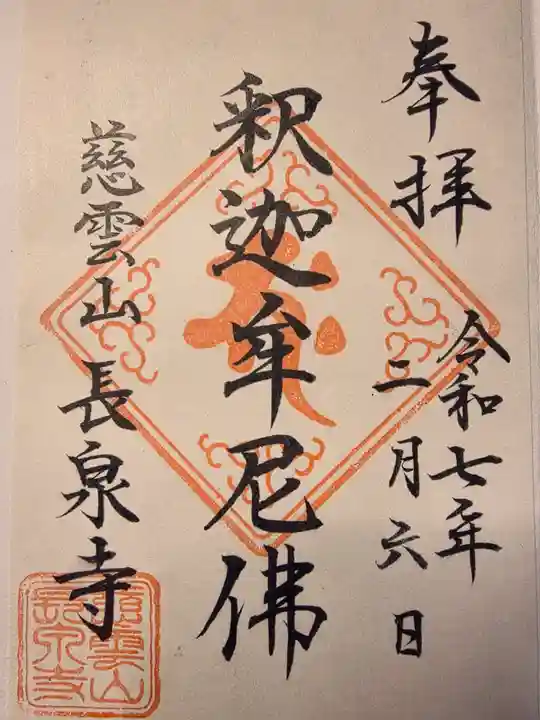 奉拝
令和七年
二月六日
釈迦牟尼佛
慈雲山長泉寺
慈雲山
長泉寺